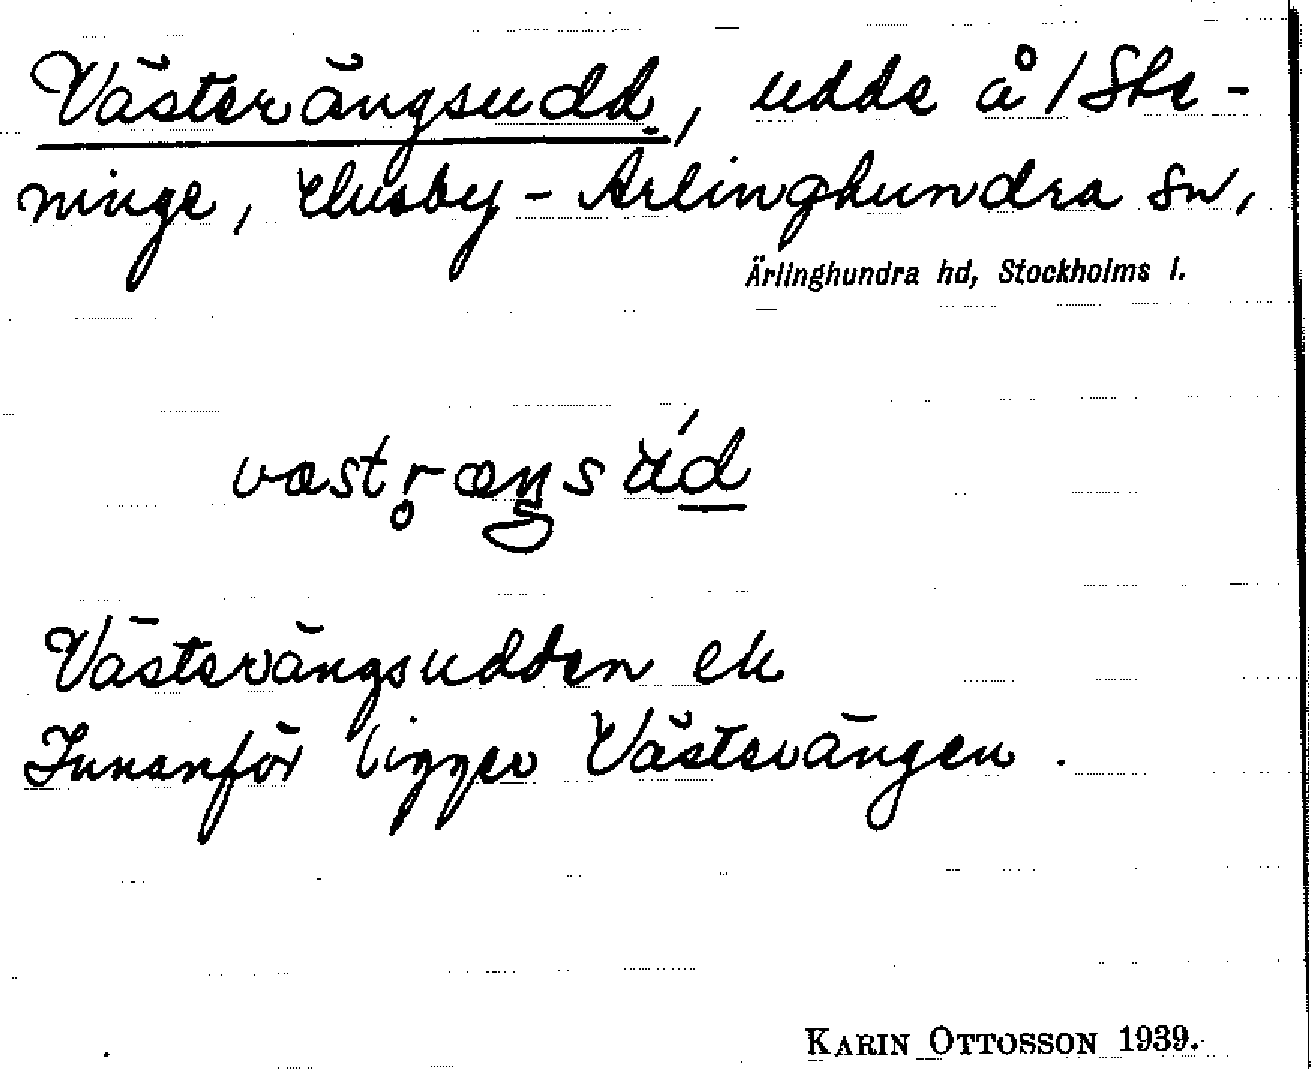 Västerängsudd, udde å /Ste-
ninge, Husby-Ärlinghundra sn,
Ärlinghundra hd, Stockholms l.
Västerängsudden ek
Innanför ligger Västerängen.
KARIN OTTOSSON 1939.